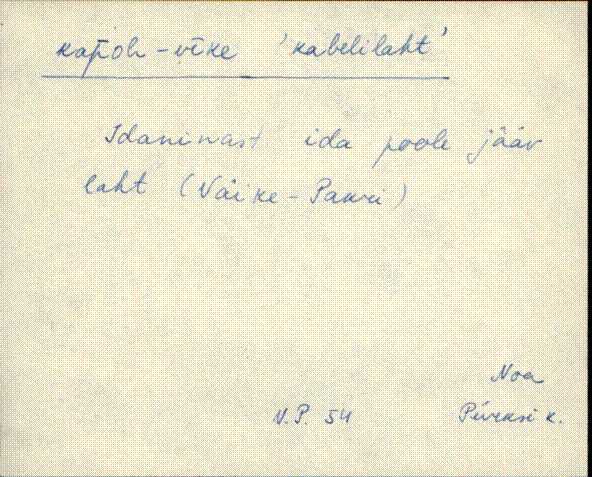 kap̄ol-vīke 'kabelilaht'
Idaninast ida poole jääv
laht (Väike-Pakri)
Noa
N.P. 54 Pürksi k.